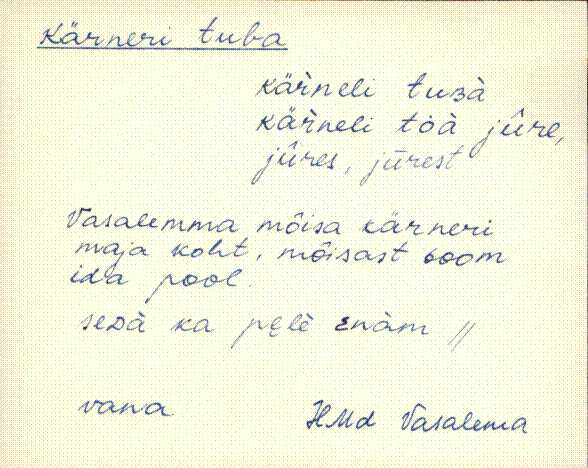 Kärneri tuba
kärneli tuʙà
kärneli tòà jûre,
jûres, jūrest
Vasalemma mõisa kärneri
maja koht, mõisast 600m
ida pool.
seᴅà ka pęlè enàm //
vana
HMd Vasalema